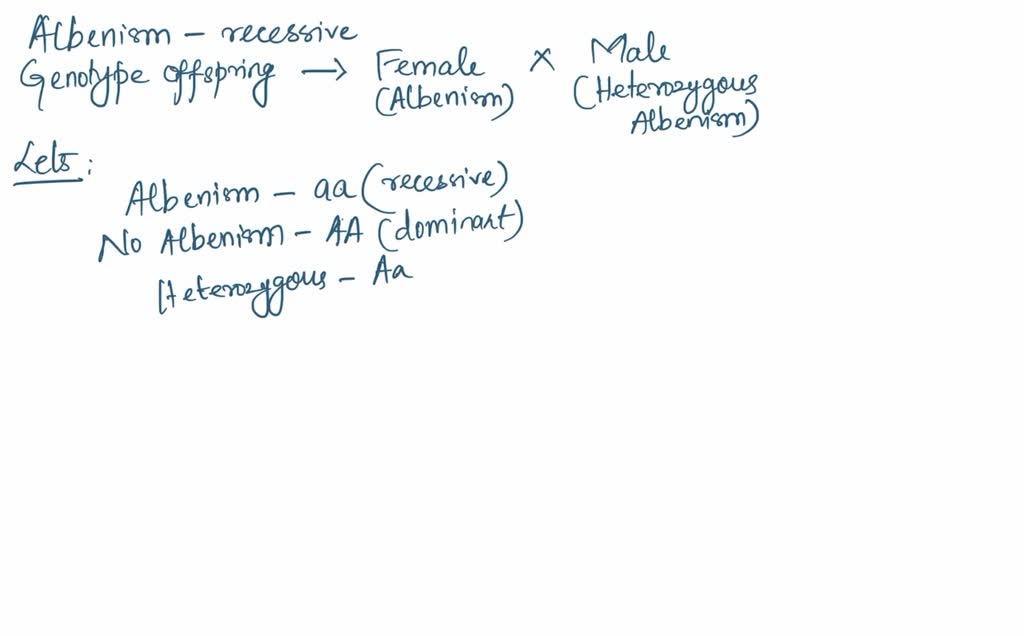 Albenism - recessive
Genotype offspring → Female × Male
(Albenism) (Heterozygous
Albenism)
Lets:
Albenism - aa (recessive)
No Albenism - AA (dominant)
Heterozygous - Aa